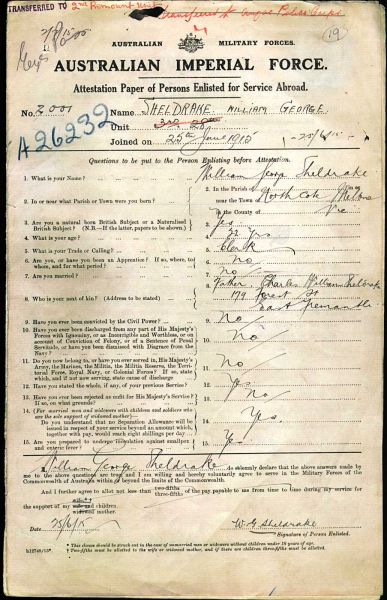 TRANSFERRED TO 2nd Remount Unit
Transferred to
(19)
AUSTRALIAN MILITARY FORCES.
AUSTRALIAN IMPERIAL FORCE.
Attestation Paper of Persons Enlisted for Service Abroad.
No. 2001 Name SHELDRAKE WILLIAM GEORGE
A26232
Unit
Joined on 25th June 1915
Questions to be put to the Person Enlisting before Attestation.
1. What is your Name? 1. William George Sheldrake
2. In or near what Parish or Town were you born? 2. In the Parish of
near the Town of
in the County of Vic
3. Are you a natural born British Subject or a Naturalised British Subject? (N.B.—If the latter, papers to be shown) 3. Yes
4. What is your age? 4.
5. What is your Trade or Calling? 5. Clerk
6. Are you, or have you been an Apprentice? If so, where, to whom, and for what period? 6. No
7. Are you married? 7. No
8. Who is your next of kin? (Address to be stated) 8. Father, Charles William Sheldrake
179 Forest St
East Fremantle
9. Have you ever been convicted by the Civil Power? 9. No
10. Have you ever been discharged from any part of His Majesty's Forces with Ignominy, or as Incorrigible and Worthless, or on account of Conviction of Felony, or of a Sentence of Penal Servitude, or have you been dismissed with Disgrace from the Navy? 10. No
11. Do you now belong to, or have you ever served in, His Majesty's Army, the Marines, the Militia, the Militia Reserve, the Territorial Force, Royal Navy, or Colonial Forces? If so, state which, and if not now serving, state cause of discharge 11. No
12. Have you stated the whole, if any, of your previous Service? 12. Yes
13. Have you ever been rejected as unfit for His Majesty's Service? If so, on what grounds? 13. No
14. (For married men and widowers with children and soldiers who are the sole support of widowed mother)
Do you understand that no Separation Allowance will be issued in respect of your service beyond an amount which, together with pay, would reach eight shillings per day? 14. Yes
15. Are you prepared to undergo inoculation against smallpox and enteric fever? 15. Yes
I, William George Sheldrake do solemnly declare that the above answers made by
me to the above questions are true, and I am willing and hereby voluntarily agree to serve in the Military Forces of the
Commonwealth of Australia within or beyond the limits of the Commonwealth.
And I further agree to allot not less than two-fifths three-fifths of the pay payable to me from time to time during my service for
the support of my wife and children widowed mother.
Date 25/6/15 W. G. Sheldrake
Signature of Person Enlisted.
* This clause should be struck out in the case of unmarried men or widowers without children under 18 years of age.
† Two-fifths must be allotted to the wife or widowed mother, and if there are children three-fifths must be allotted.